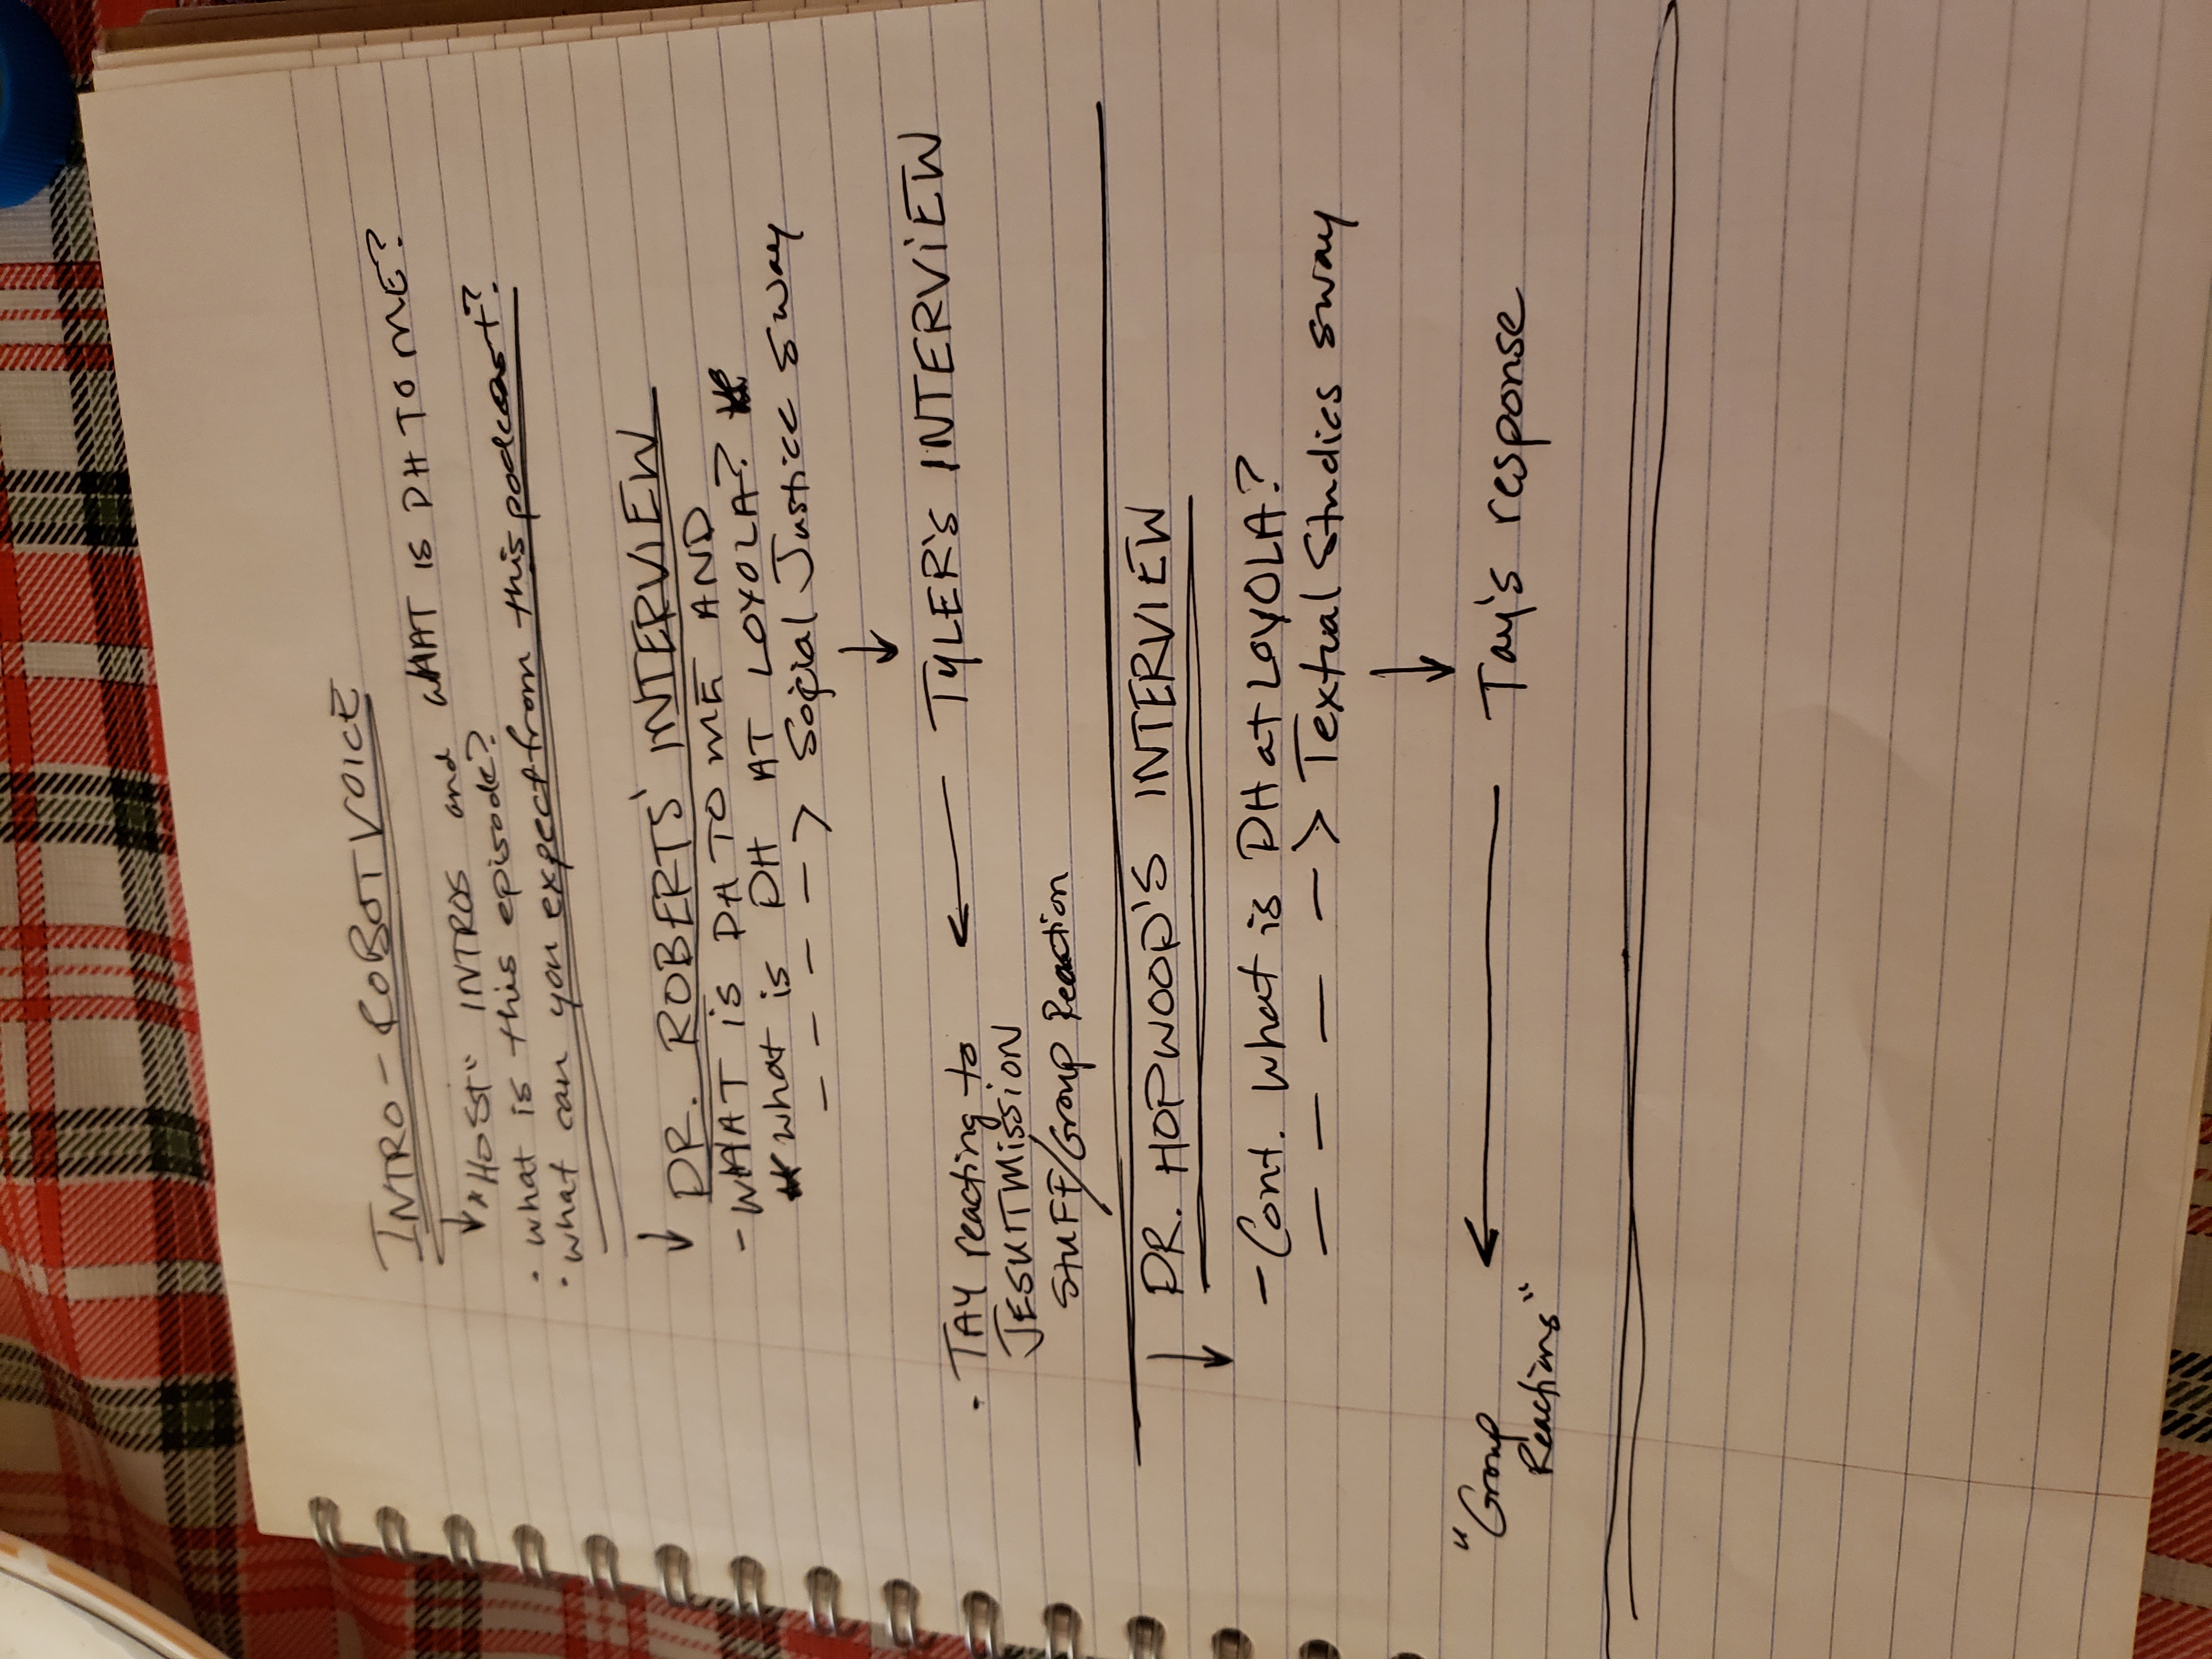 INTRO - ROBOT VOICE
"HOST" INTROS and WHAT IS DH TO ME?
· what is this episode?
· what can you expect from this podcast?
DR. ROBERTS' INTERVIEW
- WHAT IS DH TO ME AND
what is DH AT LOYOLA?
----> Social Justice sway
TYLER'S INTERVIEW
· TAY reacting to
JESUIT MISSION
STUFF/Group Reaction
DR. HOPWOOD'S INTERVIEW
- Cont. What is DH at LOYOLA?
----> Textual Studies sway
Tay's response
"Group
Reactions"